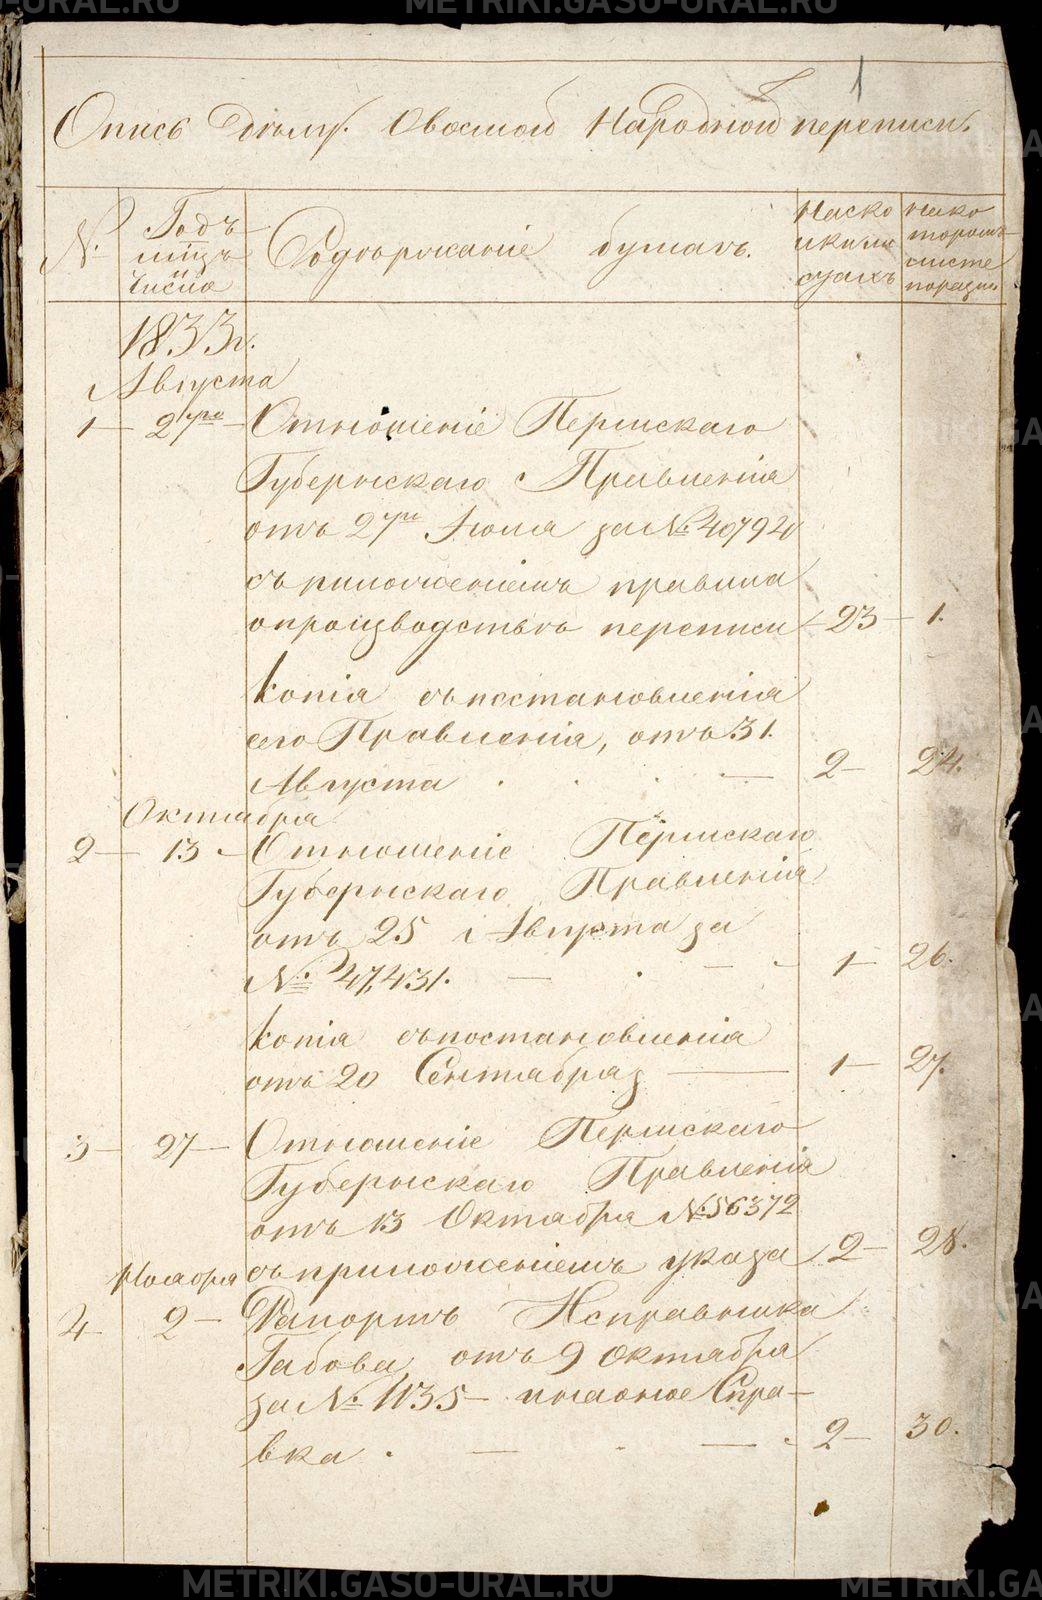 METRIKI.GASO-URAL.RU
1
Опись Дѣлу. О восмой Народной переписи.
№
Годъ
мцъ
числа
Содѣржаніе бумагъ.
На ско
ихъ ли
стахъ
На ко
торомъ
листе
1833 г.
Августа
1 — 27го — Отношеніе Пермскаго
Губернскаго Правленія
отъ 27го Іюля за № 40794
съ приложеніемъ правила
о производствѣ переписи — 23 — 1.
копія съ постановленія
сего Правленія, отъ 31.
Августа . . . — 2 — 24.
Октября
2 — 13 — Отношеніе Пермскаго
Губернскаго Правленія
отъ 25 Августа за
№ 47,431. — . — 1 — 26.
копія съ постановленія
отъ 20 Сентября — 1 — 27.
3 — 27 — Отношеніе Пермскаго
Губернскаго Правленія
отъ 13 Октября № 56372
съ приложеніемъ указа 2 — 28.
Ноября
4 2 — Рапортъ Исправника
отъ 9 Октября
за № 1135 — Спра-
вка . — . — 2 — 30.
METRIKI.GASO-URAL.RU